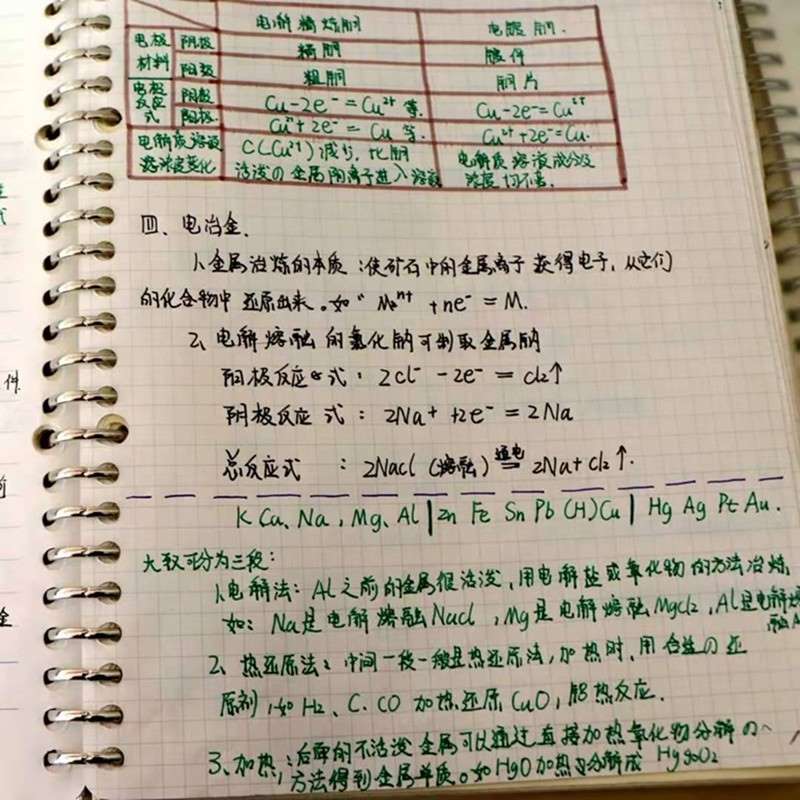 电解精炼铜 电镀铜.
电极材料 阴极 精铜 镀件
阳极 粗铜 铜片
电极反应式 阳极 Cu-2e⁻=Cu²⁺等. Cu-2e⁻=Cu²⁺
阴极. Cu²⁺+2e⁻=Cu等. Cu²⁺+2e⁻=Cu.
电解质溶液 C(Cu²⁺)减少, 比铜 电解质溶液成分及
浓度变化 活泼の金属阳离子进入溶液 浓度均不变.
四、电冶金.
1、金属冶炼的本质:使矿石中的金属离子获得电子,从它们
的化合物中还原出来。如" Mⁿ⁺+ne⁻=M.
2、电解熔融的氯化钠可制取金属钠
阳极反应式:2Cl⁻-2e⁻=Cl2↑
阴极反应式:2Na⁺+2e⁻=2Na
总反应式:2NaCl(熔融) 通电 = 2Na+Cl2↑.
K Ca、Na,Mg、Al|Zn Fe Sn Pb (H)Cu|Hg Ag Pt Au.
大致可分为三段:
1、电解法:Al之前的金属很活泼,用电解盐或氧化物的方法冶炼,
如:Na是电解熔融NaCl,Mg是电解熔融MgCl2,Al是电解熔
融
2、热还原法:中间一段一般是热还原法,加热时,用合适の还
原剂,如H2、C、CO加热还原CuO,铝热反应.
3、加热:后面的不活泼金属可以通过直接加热氧化物分解の
方法得到金属单质。如HgO加热分解成Hg和O2